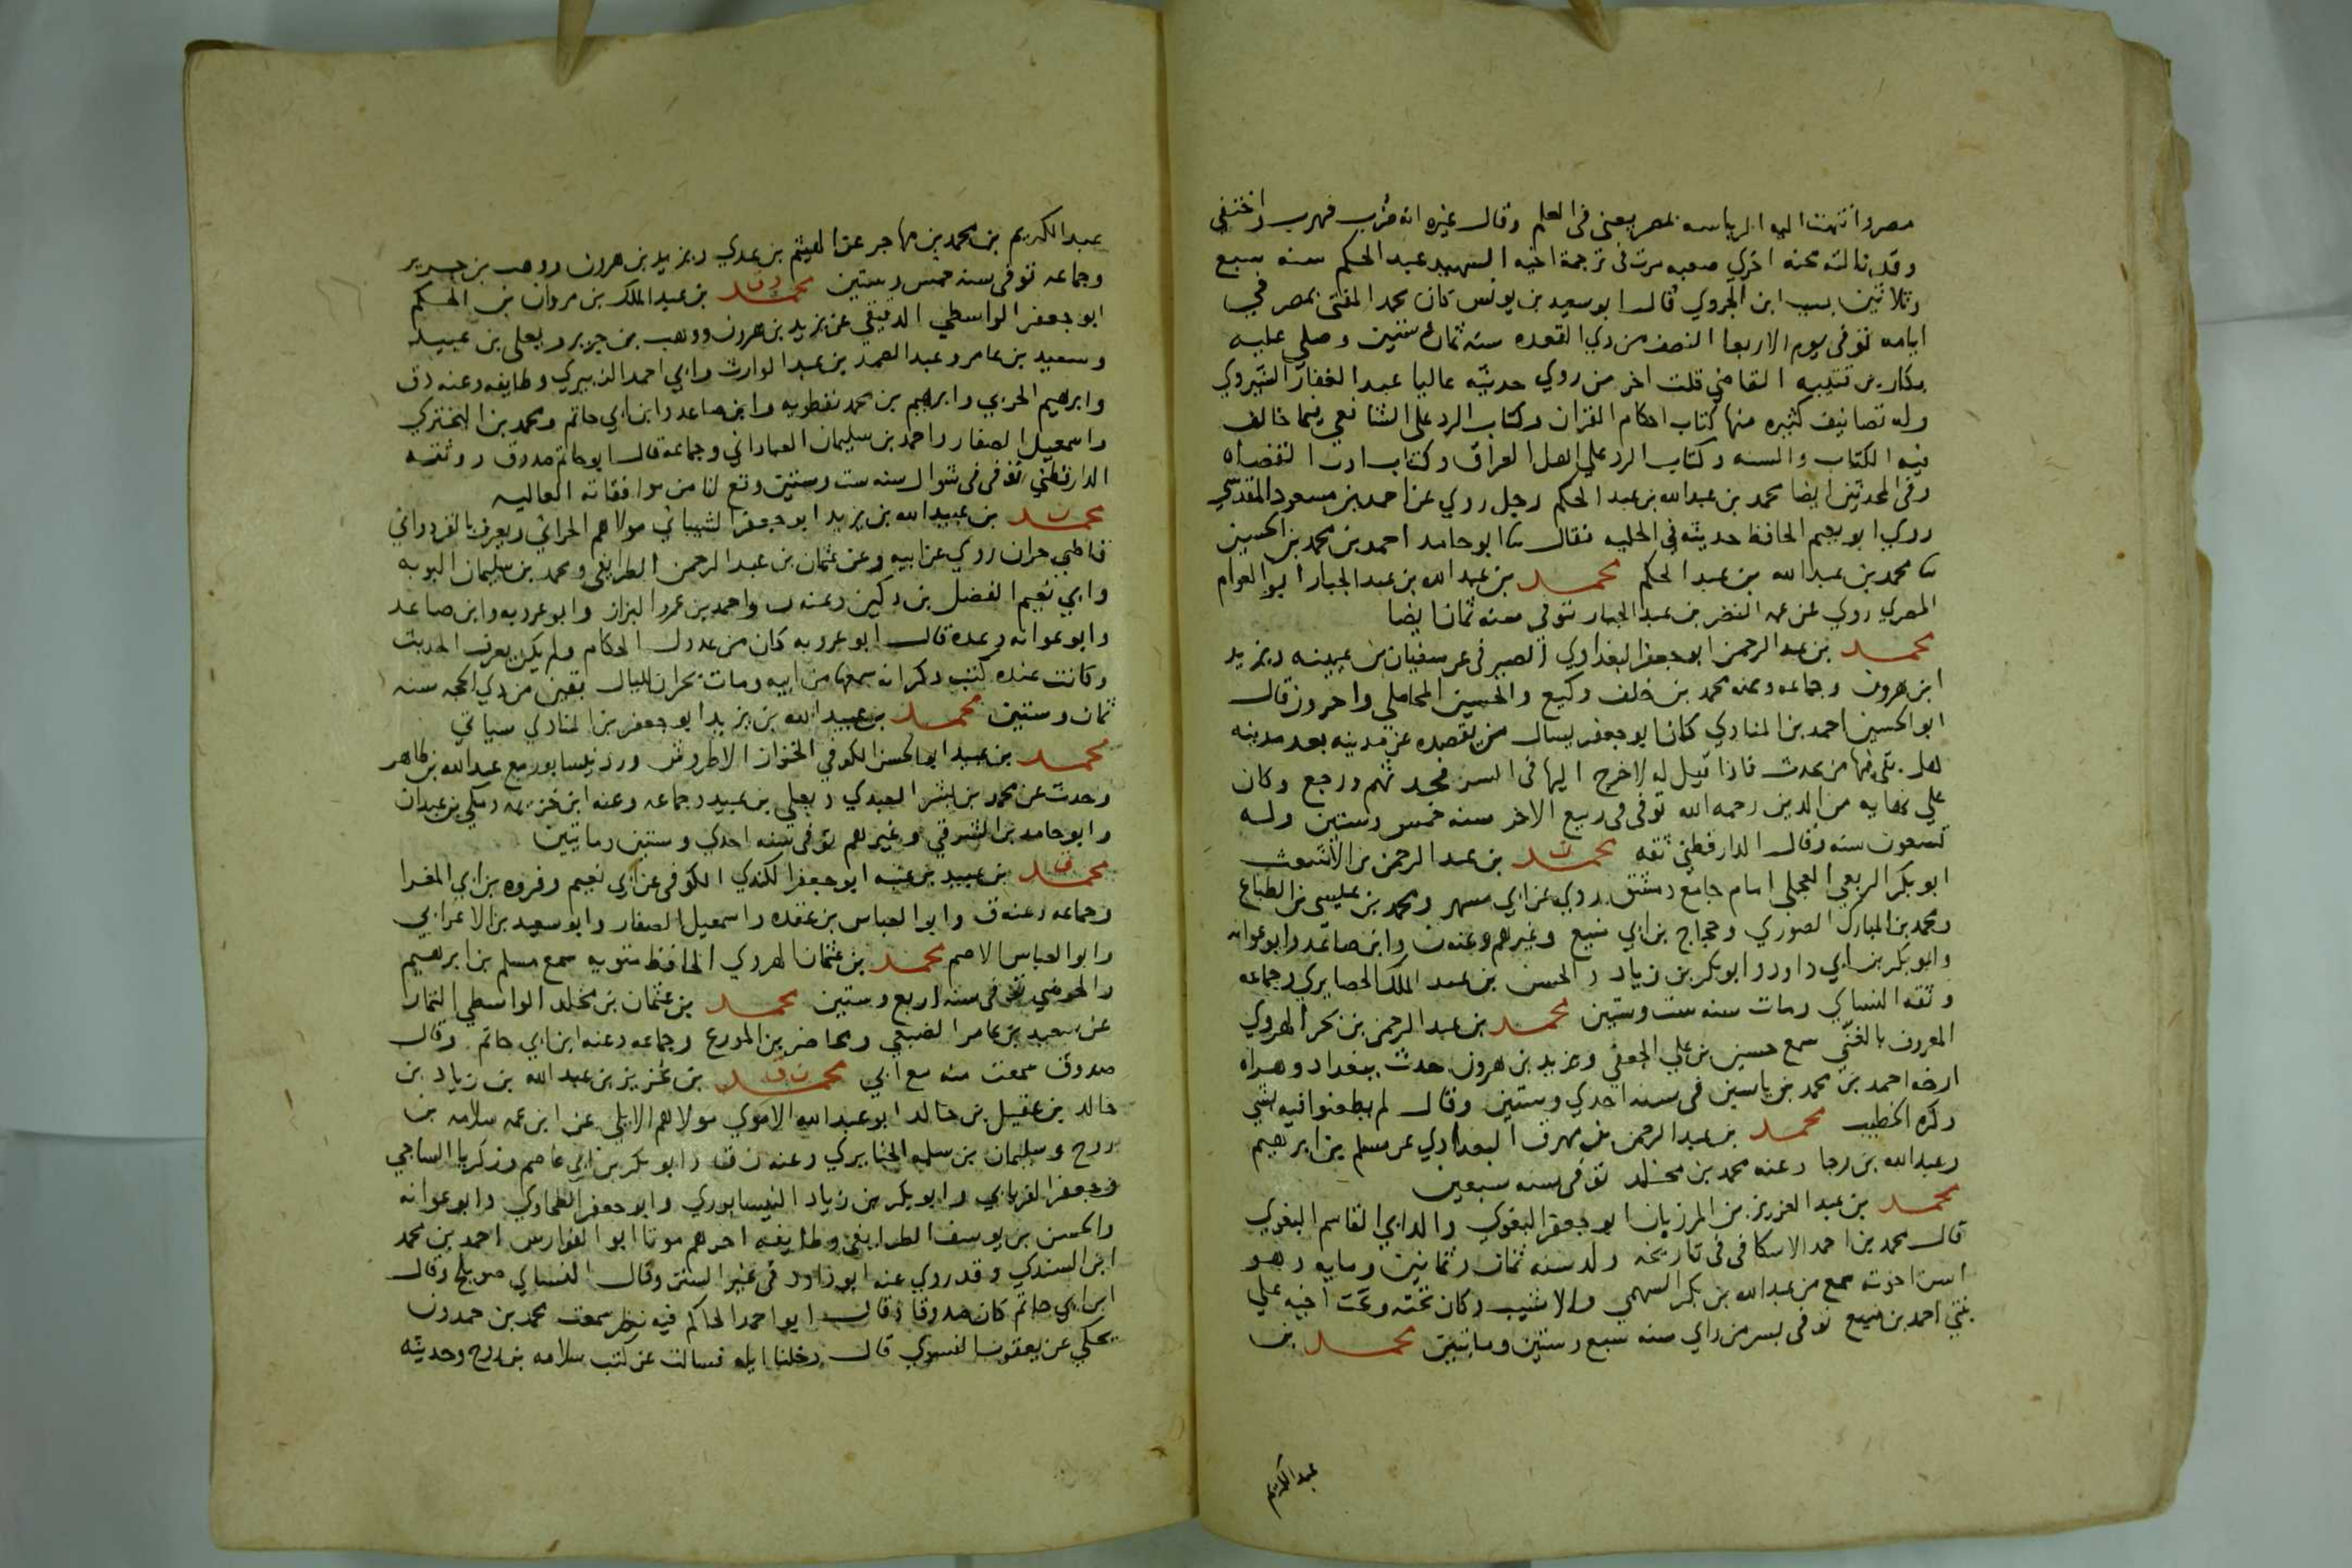 مصر وانتهت اليه الرياسه بمصر يعنى فى العلم وقال غيره انه ضرب فهرب واختفى
وقد نالته محنه اخري صعبه مرت فى ترجمة اخيه الشهيد عبد الحكم سنه سبع
وثلاثين بسبب ابن الجروي قال ابو سعيد بن يونس كان محمد المفتى بمصر في
ايامه توفى يوم الاربعا النصف من ذي القعده سنه ثمان وستين وصلى عليه
بكار بن قتيبه القاضي قلت اخر من روي حديثه عاليا عبد الغفار الشيروي
وله تصانيف كثيره منها كتاب احكام القران وكتاب الرد على الشافعي فيما خالف
فيه الكتاب والسنه وكتاب الرد على اهل العراق وكتاب ادب القضاه
وفى المحدثين ايضا محمد بن عبد الله بن عبد الحكم رجل روي عن احمد بن مسعود المقدسي
روي ابو نعيم الحافظ حديثه فى الحليه فقال ثنا ابو حامد احمد بن محمد بن الحسين
ثنا محمد بن عبد الله بن عبد الحكم محمد بن عبد الله بن عبد الجبار ابو العوام
المصري روي عن عمه النضر بن عبد الجبار توفى سنه ثمان ايضا
محمد بن عبد الرحمن ابو جعفر البغدادي الصيرفى عن سفيان بن عيينه ويزيد
ابن هرون وجماعه وعنه محمد بن خلف وكيع والحسين المحاملي واخرون قال
ابو الحسين احمد بن المنادي كان ابو جعفر يسال من يقصده عن مدينه بعد مدينه
هل بقى فيها من يحدث فاذا قيل له لا خرج اليها فى السر فحدثهم ورجع وكان
علي نهايه من الدين رحمه الله توفى فى ربيع الاخر سنه خمس وستين وله
تسعون سنه وقال الدارقطني ثقه محمد ن بن عبد الرحمن بن الاشعث
ابو بكر الربعي العجلي امام جامع دمشق روي عن ابي مسهر ومحمد بن عيسى بن الطباع
ومحمد بن المبارك الصوري وحجاج بن ابي منيع وغيرهم وعنه ن وابن صاعد وابو عوانه
وابو بكر بن ابي داود وابو بكر بن زياد والحسن بن عبد الملك الحصايري وجماعه
وثقه النساي ومات سنه ست وستين محمد بن عبد الرحمن بن بحر الهروي
المعروف سمع حسين بن علي الجعفي ويزيد بن هرون حدث ببغداد وهراه
ارخه احمد بن محمد بن ياسين فى سنه احدي وستين وقال لم يطعنوا فيه بشي
ذكره الخطيب محمد بن عبد الرحمن بن البغدادي عن مسلم بن ابرهيم
وعبد الله بن رجا وعنه محمد بن مخلد توفى سنه سبعين
محمد بن عبد العزيز بن المرزبان ابو جعفر البغوي والد ابي القاسم البغوي
قال محمد بن احمد الاسكافى فى تاريخه ولد سنه ثمان وثمانين ومايه وهو
اسن اخوته سمع من عبد الله بن بكر السهمي والاشيب وكان تحته وتحت اخيه علي
بنتي احمد بن منيع توفى بسر من راي سنه سبع وستين وماتين محمد بن
عبد الكريم
عبد الكريم بن محمد بن مهاجر عن الهيثم بن عدي ويزيد بن هرون ووهب بن جرير
وجماعه توفى سنه خمس وستين محمد د ق بن عبد الملك بن مروان بن الحكم
ابو جعفر الواسطي الدقيقي عن يزيد بن هرون ووهب بن جرير ويعلى بن عبيد
وسعيد بن عامر وعبد الصمد بن عبد الوارث وابي احمد الزبيري وطايفه وعنه د ق
وابرهيم الحربي وابرهيم بن محمد نفطويه وابن صاعد وابن ابي حاتم ومحمد بن البختري
واسمعيل الصفار واحمد بن سليمان العباداني وجماعه قال ابو حاتم صدوق ووثقه
الدارقطني توفى فى شوال سنه ست وستين وقع لنا من موافقاته العاليه
محمد ن بن عبيد الله بن يزيد ابو جعفر الشيباني مولاهم الحراني ويعرف بالقردواني
قاضي حران روي عن ابيه وعن عثمان بن عبد الرحمن الطرايفى ومحمد بن سليمان البومه
وابي نعيم الفضل بن دكين وعنه ن واحمد بن عمرو البزار وابو عروبه وابن صاعد
وابو عوانه وعده قال ابو عروبه كان من عدول الحكام ولم يكن يعرف الحديث
وكانت عنده كتب ذكر انه سمعها من ابيه ومات بحران لليال بقين من ذي الحجه سنه
ثمان وستين محمد بن عبيد الله بن يزيد ابو جعفر بن المنادي سياتي
محمد بن عبيد ابو الحسن الكوفي الاطروش ورد نيسابور مع عبد الله بن طاهر
وحدث عن محمد بن بشر العبدي ويعلي بن عبيد وجماعه وعنه ابن خزيمه ومكي بن عبدان
وابو حامد بن الشرقي وغيرهم توفى سنه احدي وستين وماتين
محمد ق بن عبيد بن عتبه ابو جعفر الكندي الكوفى عن ابي نعيم وفروه بن ابي المغرا
وجماعه وعنه ق وابو العباس بن عقده واسمعيل الصفار وابو سعيد بن الاعرابي
وابو العباس الاصم محمد بن عثمان الهروي الحافظ متويه سمع مسلم بن ابرهيم
والحوضي توفى سنه اربع وستين محمد بن عثمان بن مخلد الواسطي التمار
عن سعيد بن عامر الضبعي ومحاضر بن المورع وجماعه وعنه ابن ابي حاتم وقال
صدوق سمعت منه مع ابي محمد ن ق بن عزيز بن عبد الله بن زياد بن
خالد بن عقيل بن خالد ابو عبد الله الاموي مولاهم الايلي عن ابن عمه سلامه بن
روح وسليمان بن سلمه الخبايري وعنه ن ق وابو بكر بن ابي عاصم وزكريا الساجي
وجعفر الفريابي وابو بكر بن زياد النيسابوري وابو جعفر الطحاوي وابو عوانه
والحسن بن يوسف الطرايفي وطايفه اخرهم موتا ابو الفوارس احمد بن محمد
ابن السندي وقد روي عنه ابو داود فى غير السنن وقال النساي صويلح وقال
ابن ابي حاتم كان صدوقا وقال ابو احمد الحاكم فيه نظر سمعت محمد بن حمدون
يحكي عن يعقوب الفسوي قال دخلنا ايله فسالت عن كتب سلامه بن روح وحديثه